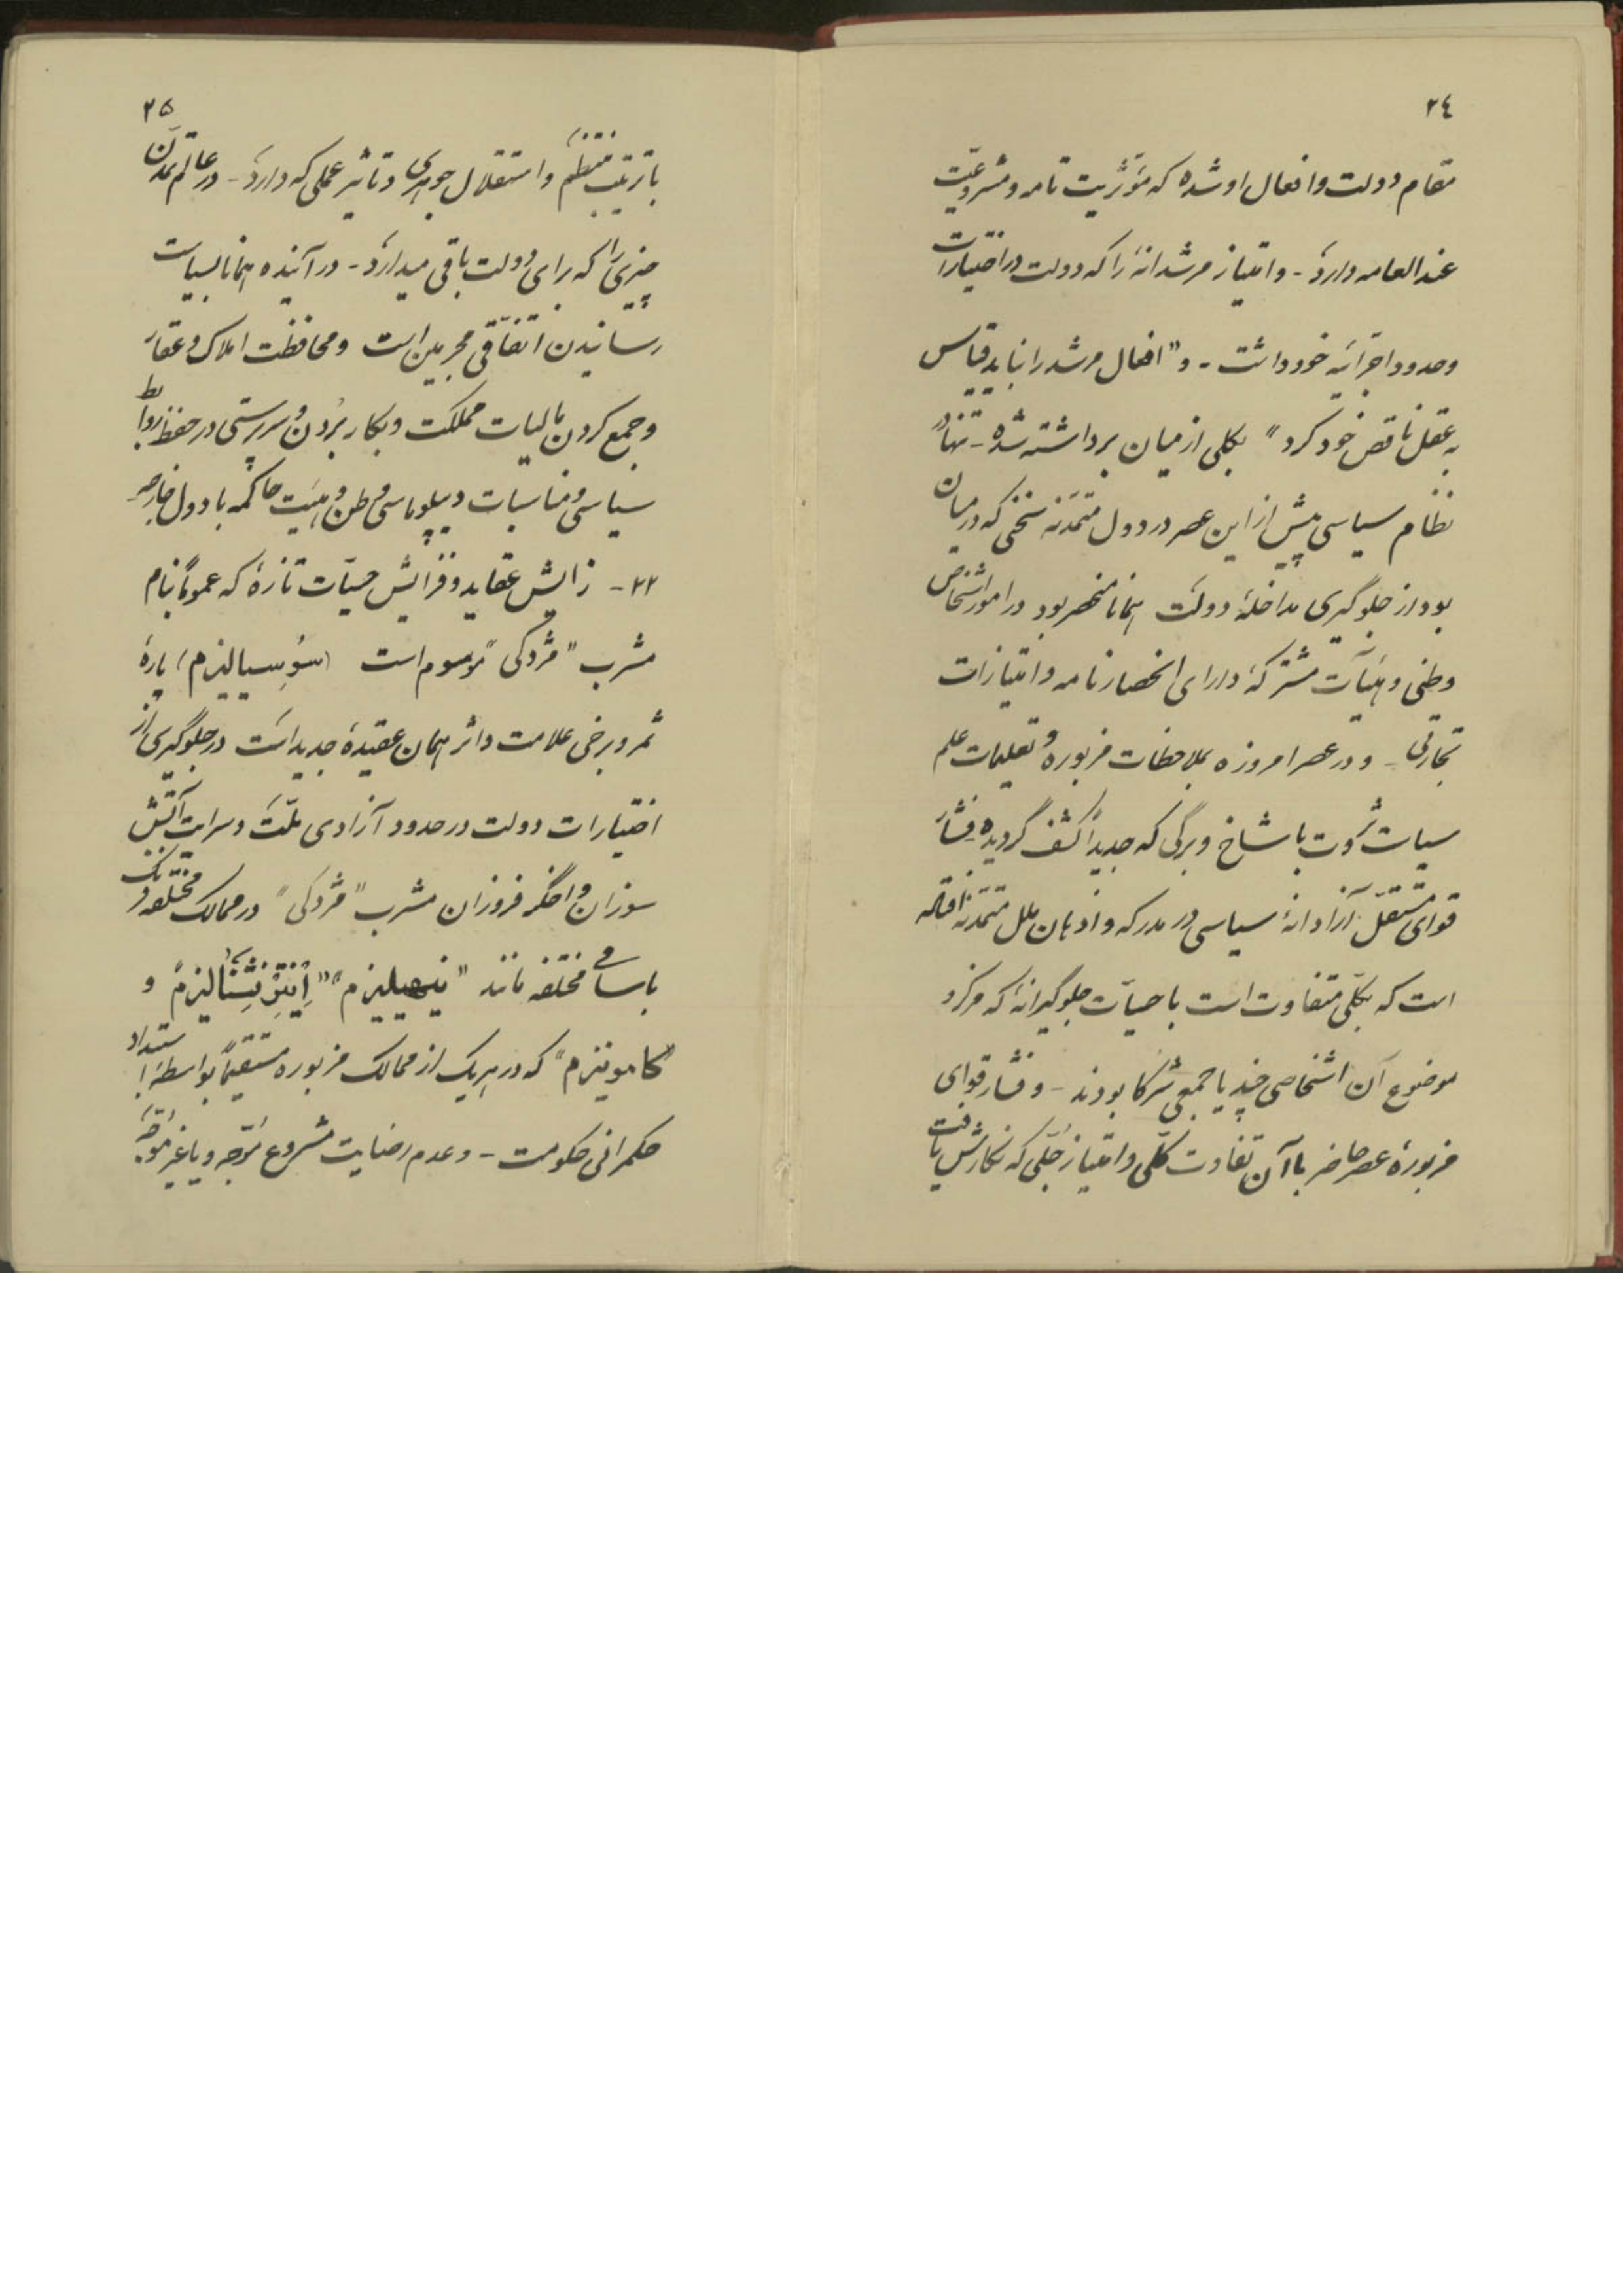 ٢٤
مقام دولت و افعال او شده که مؤثریت تامه و مشروعیت
عندالعامه دارد - و امتیاز مرشدانهٔ را که دولت در اختیارات
و حدود اجرائیه خود داشت - و "افعال مرشد را نباید قیاس
به عقل ناقص خود کرد" بکلی از میان برداشته شده - تنها
نظام سیاسی پیش از این عصر در دول متمدنه که در میان
بود از جلوگیری مداخلهٔ دولت همانا منحصر بود در امور اشخاص
وطنی و هیئات مشترکهٔ دارای انحصارنامه و امتیازات
تجارتی - و در عصر امروزه بملاحظات مزبوره و تعلیمات علم
سیاست ثروت با شاخ و برگی که جدیداً کشف گردیده فشار
قوای مستقل آزادانهٔ سیاسی در مدرکه و اذهان ملل متمدنه
است که بکلی متفاوت است با حسیات جلوگیرانهٔ که مرکز و
موضوع آن اشخاصی چند یا جمعی شرکا بودند - و فشار قوای
مزبورهٔ عصر حاضر با آن تفاوت کلی و امتیاز جلی که نگارش یافت
٢٥
با ترتیب منتظم و استقلال جوهری و تاثیر عملی که دارد - در عالم تمدن
چیزی را که برای دولت باقی میدارد - در آینده همانا بسیاست
رسانیدن اتفاقی مجرمین است و محافظت املاک و عقار
و جمع کردن مالیات مملکت و بکار بردن و سرپرستی در حفظ روابط
سیاسی و مناسبات دیپلوماسی وطن و هیئت حاکمه با دول خارجه
٢٢ - زایش عقاید و فزایش حسیّات تازهٔ که عموماً بنام
مشرب "مزدکی" موسوم است (سُوسیالیزم) پارهٔ
ثمر و برخی علامت و اثر همان عقیدهٔ جدید است در جلوگیری از
اختیارات دولت در حدود آزادی ملّت و سرایت آتش
سوزان و اخگر فروزان مشرب "مزدکی" در ممالک مختلفه
باسامی مختلفه مانند "نیهیلیزم" "اِنتِرنِشنالیزم" و
"کامونیزم" که در هریک از ممالک مزبوره مستقیماً بواسطهٔ استبداد
حکمرانی حکومت - و عدم رضایت مشروع موّجه و یا غیر موّجه